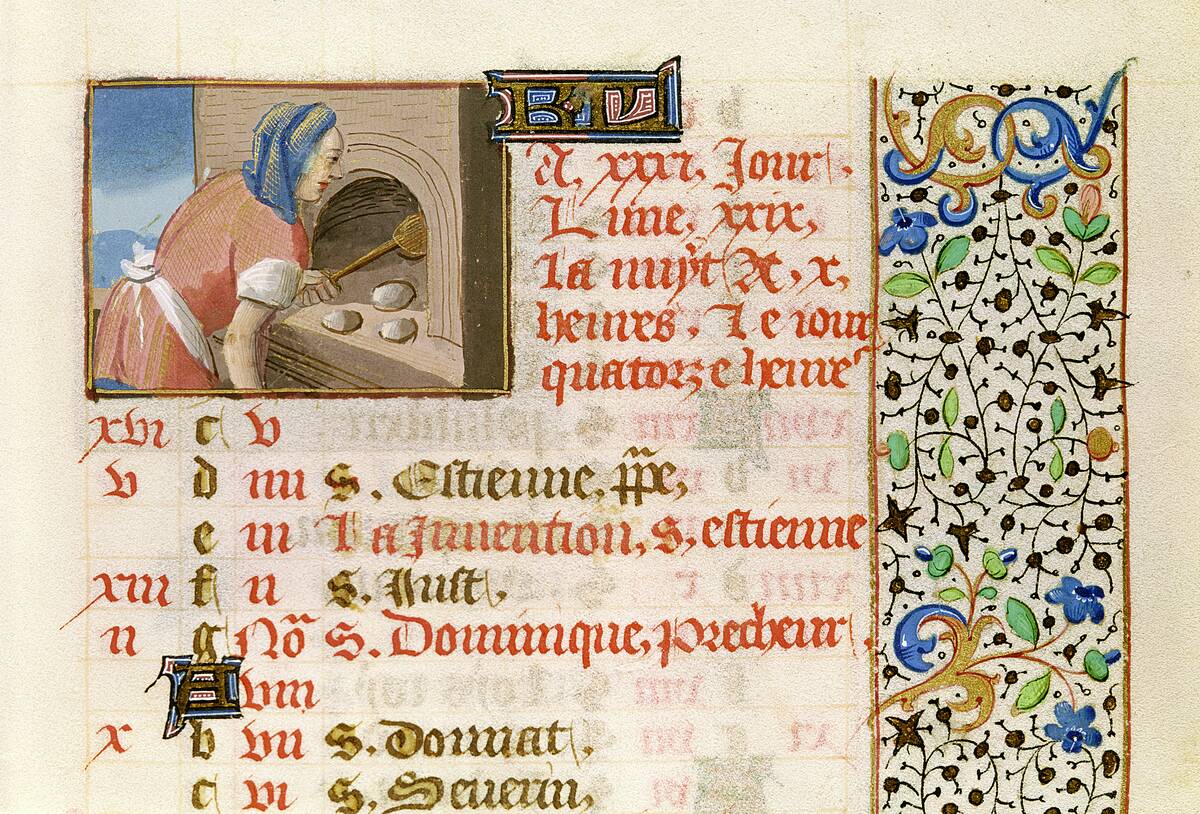 A, xxxi, Jour.
Lune, xxix,
La nuyt A, x,
heures. Le iour
quatorze heure
xvi c v
v d iiii S. Estienne, ppe,
e iii La Jnuention, s, estienne
xiii f ii S. Just.
ii g Nõ S. Dominique, precheur.
A viii
x b vii S. Donnat.
c vi S. Seuerin,